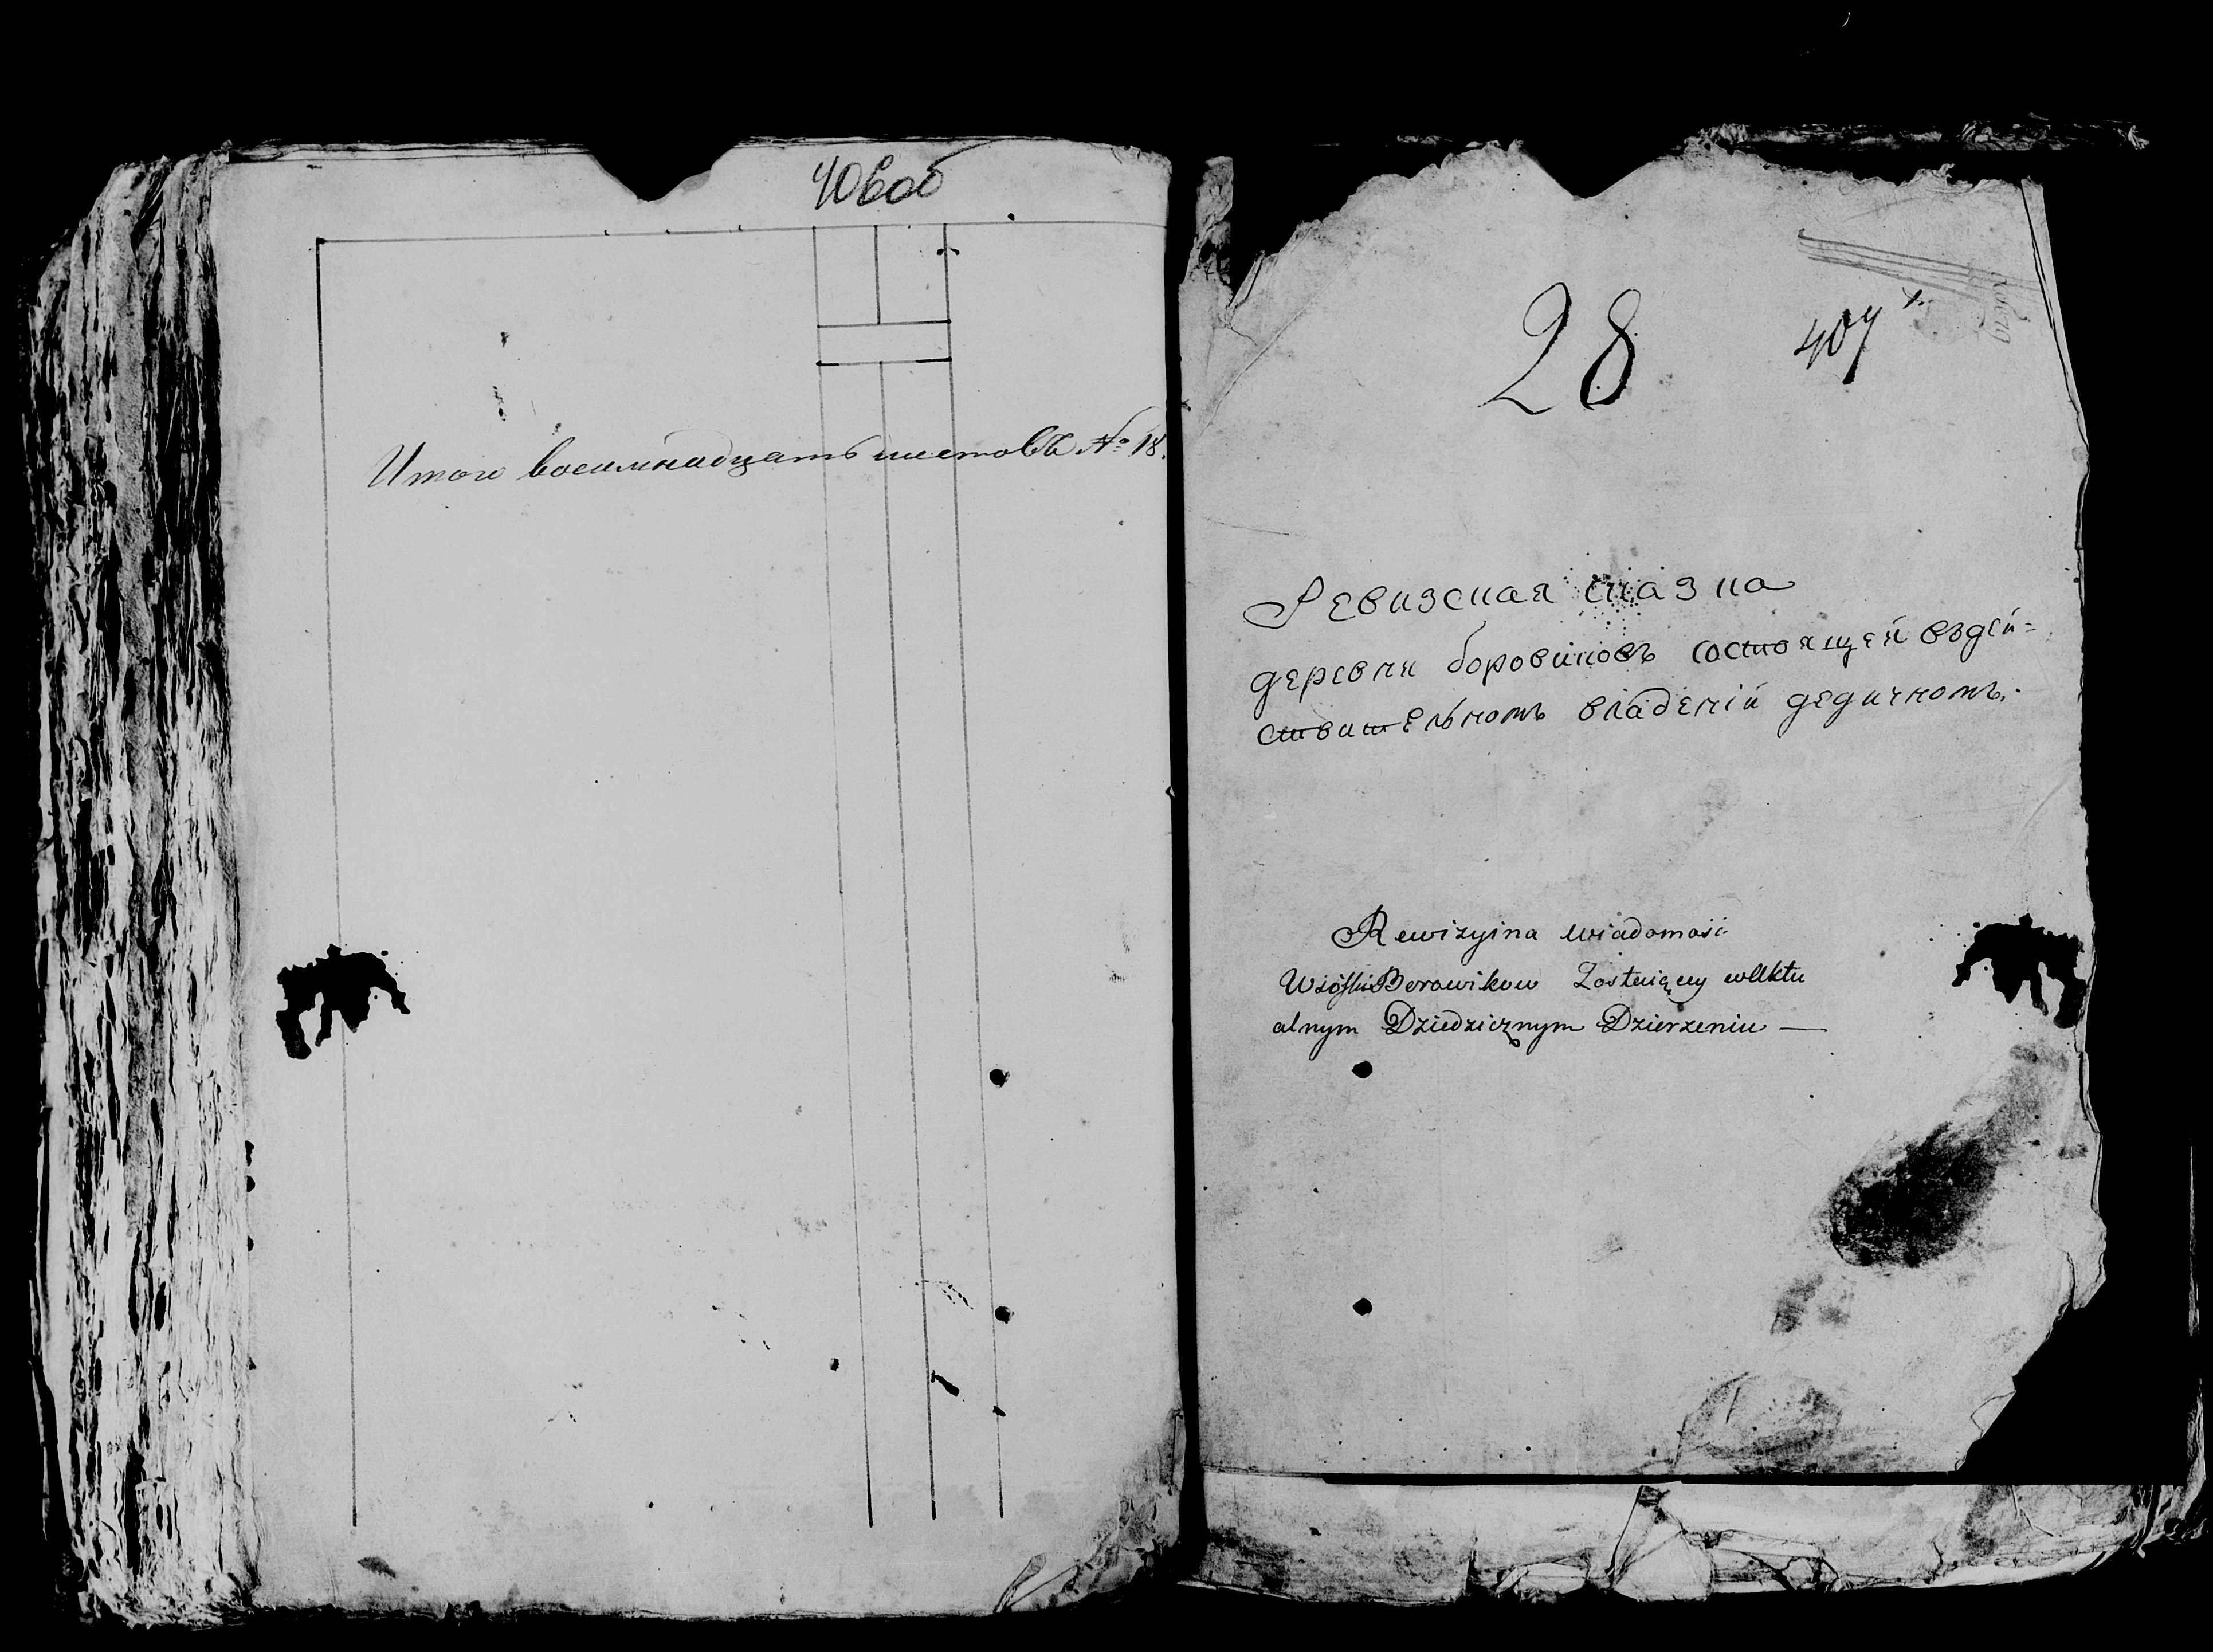 406 об
Итого восимнадцать листовъ № 18.
28
407
Ревизская сказка
деревни боровиковъ состоящей въ дей=
ствительномъ владеній дедичномъ.
Rewizyina wiadomość
Wioski Borowikow Zostaiący w Aktu
alnym Dziedzicznym Dzierzeniu —